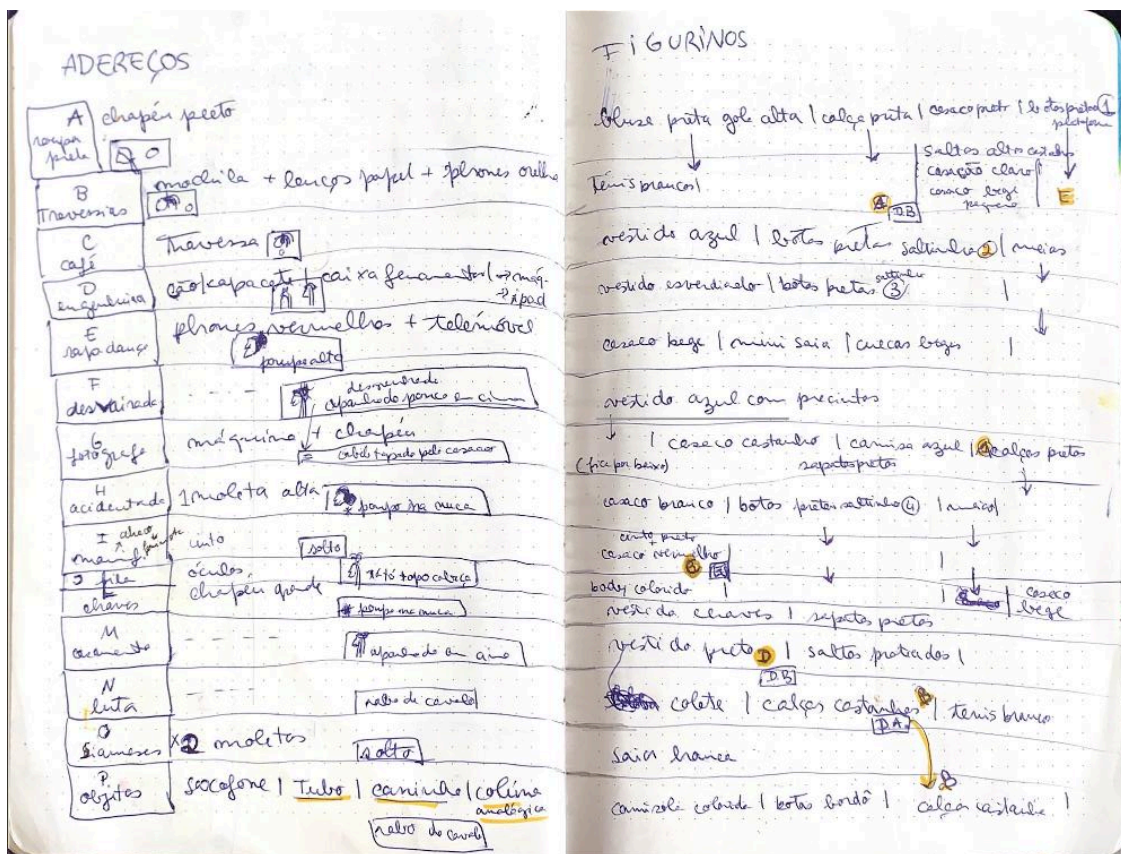 ADEREÇOS
A
roupa preta
chapéu preto
B
Travessias
mochila + lenços papel + phones orelha
C
café
Travessa
D
engenheira
cão/capacete + caixa ferramentas
ipad
E
rapo dança
phones vermelhos + telemóvel
poupo alto
F
desvairada
- - - -
apanhado pouco em cima
G
fotógrafo
máquina + chapéu
cabelo tapado pelo casaco
H
acidentada
1 moleta alta
poupo na nuca
I
cinto
solto
J fila
óculos,
chapéu grande
tótó topo cabeça
chaves
poupo na nuca
M
casamento
- - - -
apanhado em cima
N
luta
- - - -
rabo de cavalo
O
siameses
x2 moletas
solto
P
objetos
saxofone | Tubo | caminho | coluna
analógica
rabo de cavalo
FIGURINOS
blusa preta gola alta | calça preta | casaco preto | botas pretas 1
saltos altos castanhos
casacão claro
casaco bege
pequeno
E
Ténis brancos |
A
D.B
vestido azul | botas pretas saltinho 2 | meias
vestido esverdiado | botas pretas saltinho 3 |
casaco bege | mini saia | cuecas beges |
vestido azul com precintas
(fica por baixo)
| casaco castanho | camisa azul | calças pretas
sapatos pretos
casaco branco | botas pretas saltinho 4 | meias |
cinto preto
casaco vermelho |
body colorido |
casaco
bege
vestido chaves | sapatos pretos
vestido preto D | saltos prateados |
D.B
colete | calças castanhas B | tenis branco
D.A
saia branca
camisola colorida | bota bordô | calças castanha |